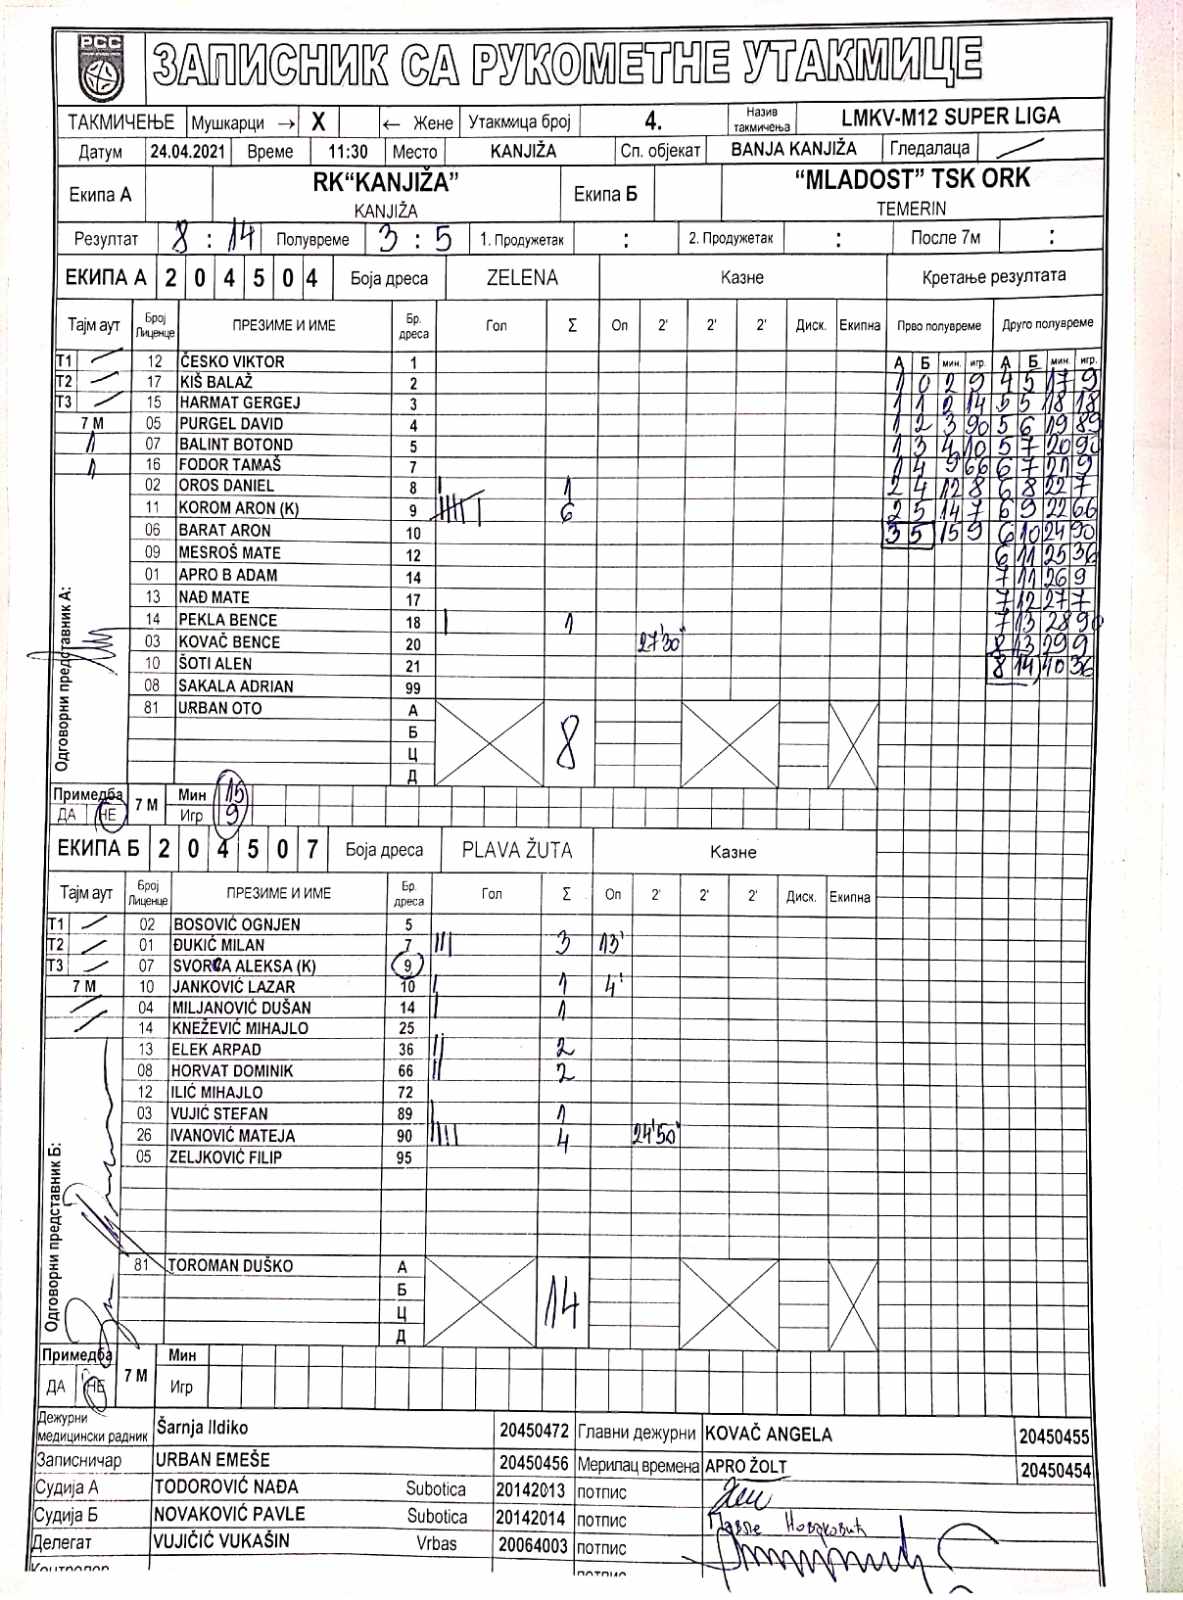 РСС
ЗАПИСНИК СА РУКОМЕТНЕ УТАКМИЦЕ
ТАКМИЧЕЊЕ Мушкарци → X ← Жене Утакмица број 4. Назив такмичења LMKV-M12 SUPER LIGA
Датум 24.04.2021 Време 11:30 Место KANJIŽA Сп. објекат BANJA KANJIŽA Гледалаца
Екипа А RK“KANJIŽA” Екипа Б “MLADOST” TSK ORK
KANJIŽA TEMERIN
Резултат 8 : 14 Полувреме 3 : 5 1. Продужетак : 2. Продужетак : После 7м :
ЕКИПА А 2 0 4 5 0 4 Боја дреса ZELENA Казне Кретање резултата
Тајм аут Број Лиценце ПРЕЗИМЕ И ИМЕ Бр. дреса Гол Σ Оп 2' 2' 2' Диск. Екипна Прво полувреме Друго полувреме
T1 12 ČESKO VIKTOR 1 А Б мин. игр. А Б мин. игр.
T2 17 KIŠ BALAŽ 2 1 0 2 9 4 5 17 9
T3 15 HARMAT GERGEJ 3 1 1 2 14 5 5 18 18
7 М 05 PURGEL DAVID 4 1 2 3 90 5 6 19 89
1 07 BALINT BOTOND 5 1 3 4 10 5 7 20 90
1 16 FODOR TAMAŠ 7 1 4 9 66 6 7 21 9
02 OROS DANIEL 8 1 2 4 12 8 6 8 22 7
11 KOROM ARON (K) 9 6 2 5 14 7 6 9 22 66
06 BARAT ARON 10 3 5 15 9 6 10 24 90
09 MESROŠ MATE 12 6 11 25 36
01 APRO B ADAM 14 7 11 26 9
13 NAĐ MATE 17 7 12 27 7
14 PEKLA BENCE 18 1 7 13 28 90
03 KOVAČ BENCE 20 27'30" 8 13 29 9
10 ŠOTI ALEN 21 8 14 40 36
08 SAKALA ADRIAN 99
81 URBAN OTO А
Б
8
Ц
Д
Одговорни представник А:
Примедба 7 М Мин 15
ДА НЕ Игр 9
ЕКИПА Б 2 0 4 5 0 7 Боја дреса PLAVA ŽUTA Казне
Тајм аут Број Лиценце ПРЕЗИМЕ И ИМЕ Бр. дреса Гол Σ Оп 2' 2' 2' Диск. Екипна
T1 02 BOSOVIĆ OGNJEN 5
T2 01 ĐUKIĆ MILAN 7 3 13'
T3 07 SVORCA ALEKSA (K) 9
7 М 10 JANKOVIĆ LAZAR 10 1 4'
04 MILJANOVIĆ DUŠAN 14 1
14 KNEŽEVIĆ MIHAJLO 25
13 ELEK ARPAD 36 2
08 HORVAT DOMINIK 66 2
12 ILIĆ MIHAJLO 72
03 VUJIĆ STEFAN 89 1
26 IVANOVIĆ MATEJA 90 4 24'50"
05 ZELJKOVIĆ FILIP 95
Одговорни представник Б:
81 TOROMAN DUŠKO А
Б
14
Ц
Д
Примедба 7 М Мин
ДА НЕ Игр
Дежурни медицински радник Šarnja Ildiko 20450472 Главни дежурни KOVAČ ANGELA 20450455
Записничар URBAN EMEŠE 20450456 Мерилац времена APRO ŽOLT 20450454
Судија А TODOROVIĆ NAĐA Subotica 20142013 потпис
Судија Б NOVAKOVIĆ PAVLE Subotica 20142014 потпис Павле Новаковић
Делегат VUJIČIĆ VUKAŠIN Vrbas 20064003 потпис
Контролор потпис